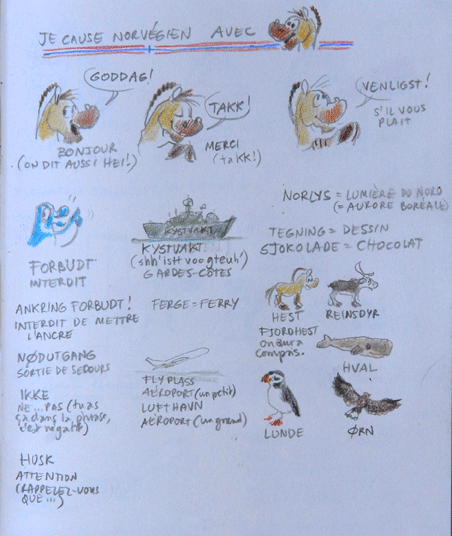 JE CAUSE NORVÉGIEN AVEC
GODDAG!
BONJOUR
(ON DIT AUSSI HEI!)
TAKK!
MERCI
(takk!)
VENLIGST!
S'IL VOUS
PLAIT
FORBUDT
INTERDIT
KYSTVAKT
KYSTVAKT
GARDES-CÔTES
NORLYS = LUMIÈRE DU NORD
(= AURORE BORÉALE)
TEGNING = DESSIN
SJOKOLADE = CHOCOLAT
ANKRING FORBUDT!
INTERDIT DE METTRE
L'ANCRE
FERGE = FERRY
HEST
FJORDHEST
on aura
compris.
REINSDYR
NØDUTGANG
SORTIE DE SECOURS
HVAL
IKKE
NE...PAS (tu as
ça dans la phrase,
c'est négatif)
FLYPLASS
AÉROPORT (un petit)
LUFTHAVN
AÉROPORT (un grand)
LUNDE
ØRN
HUSK
ATTENTION
(RAPPELEZ-VOUS
QUE...)